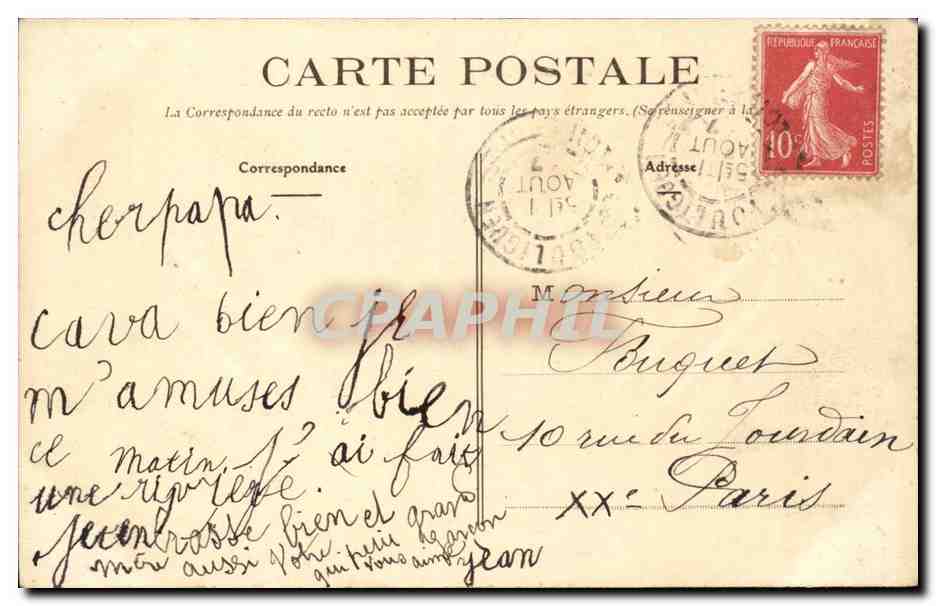 CARTE POSTALE
La Correspondance du recto n'est pas acceptée par tous les pays étrangers. (Se renseigner à la
Correspondance
Adresse
RÉPUBLIQUE FRANÇAISE
10c
POSTES
AOUT
AOUT
cher papa.
cava bien je
m'amuses bien
ce matin j'ai fait
une
je embrasse bien et gran
mère aussi votre petit garçon
qui vous aime
jean
Monsieur
Fouquet
10 rue du Jourdain
XXe Paris
CPAPHIL